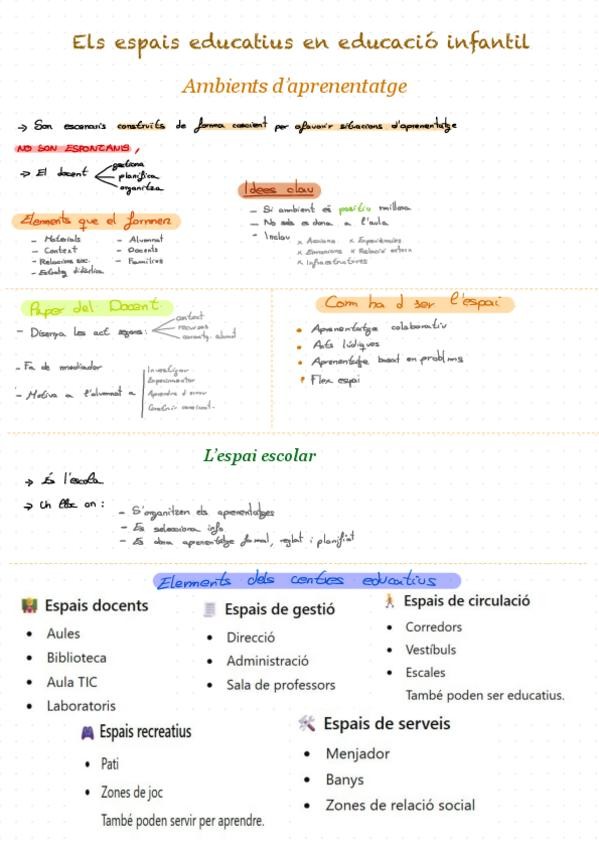 Els espais educatius en educació infantil
Ambients d'aprenentatge
→ Son escenaris construïts de forma conscient per afavorir situacions d'aprenentatge
NO SON ESPONTANIS,
→ El docent
gestiona
planifica
organitza
Elements que el formen
- Materials
- Context
- Relacions soc.
- Estratg didàctica
- Alumnat
- Docents
- Famílies
Idees clau
- Si ambient és positiu millora
- No sols es dona a l'aula
- Inclou
x Accions
x Experiències
x Emocions
x Relació extern
x Infraestructures
Paper del Docent
- Disenya les act segons:
context
recursos
- Fa de mediador
- Motiva a l'alumnat a
Investigar
Experimentar
Aprendre d error
Construir
Com ha d ser l'espai
• Aprenentatge colaboratiu
• Acts lúdiques
• Aprenentatge basat en problms
• Flex espai
L'espai escolar
→ És l'escola
→ Un lloc on:
- S'organitzen els aprenentatges
- Es selecciona info
- Es dona aprenentatge formal, reglat i planifict
Elements dels centres educatius
Espais docents
• Aules
• Biblioteca
• Aula TIC
• Laboratoris
Espais de gestió
• Direcció
• Administració
• Sala de professors
Espais de circulació
• Corredors
• Vestíbuls
• Escales
També poden ser educatius.
Espais recreatius
• Pati
• Zones de joc
També poden servir per aprendre.
Espais de serveis
• Menjador
• Banys
• Zones de relació social